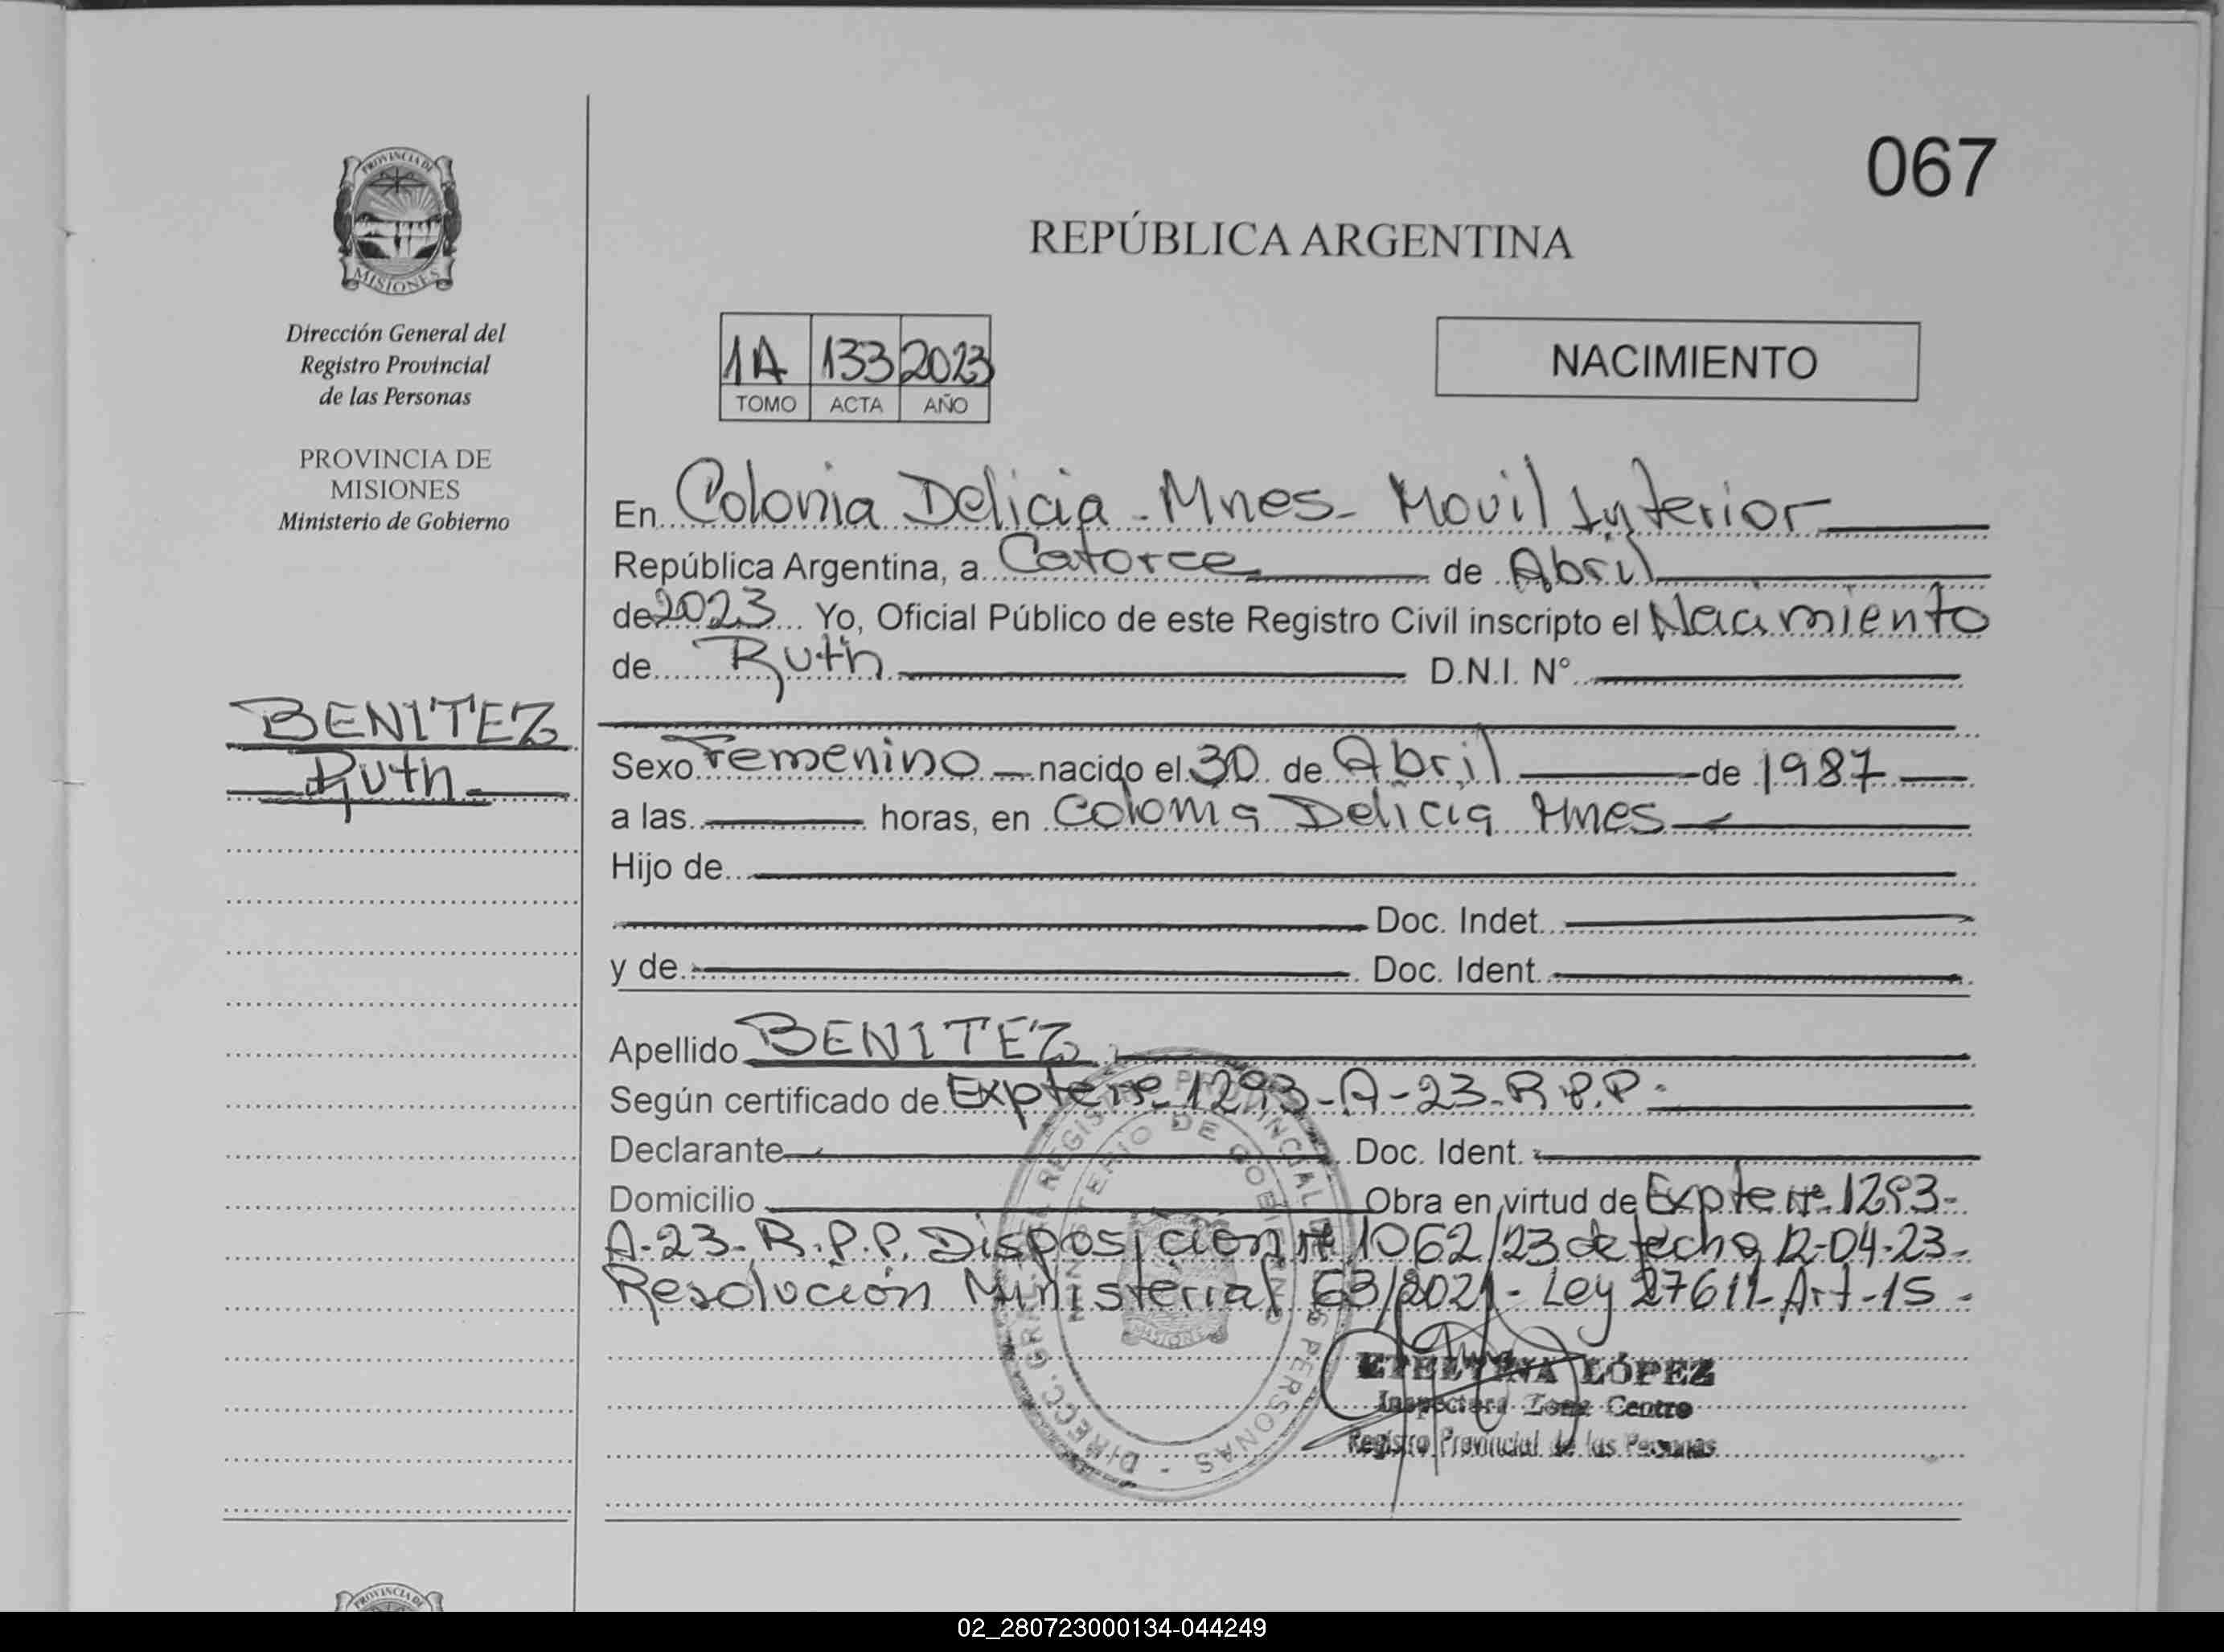 067
PROVINCIA DE
MISIONES
REPÚBLICA ARGENTINA
Dirección General del
Registro Provincial
de las Personas
PROVINCIA DE
MISIONES
Ministerio de Gobierno
1A 133 2023
TOMO ACTA AÑO
NACIMIENTO
En Colonia Delicia - Mnes - Movil Interior
República Argentina, a Catorce de Abril
de 2023 Yo, Oficial Público de este Registro Civil inscripto el Nacimiento
de Ruth D.N.I. N°
BENITEZ
Ruth
Sexo Femenino nacido el 30 de Abril de 1987
a las horas, en Colonia Delicia Mnes
Hijo de
Doc. Indet.
y de Doc. Ident.
Apellido BENITEZ
Según certificado de Expte Nº 1293-A-23-R.P.P.
Declarante Doc. Ident.
Domicilio Obra en virtud de Expte Nº 1293-
A-23-R.P.P. Disposición Nº 1062/23 de fecha 12-04-23-
Resolución Ministerial 63/2021- Ley 27611- Art-15-
DIRECC. GRAL. DEL REGISTRO PROVINCIAL DE LAS PERSONAS -
MINISTERIO DE GOBIERNO
MISIONES
ETELVINA LÓPEZ
Inspectora Zona Centro
Registro Provincial de las Personas
PROVINCIA DE
02_280723000134-044249